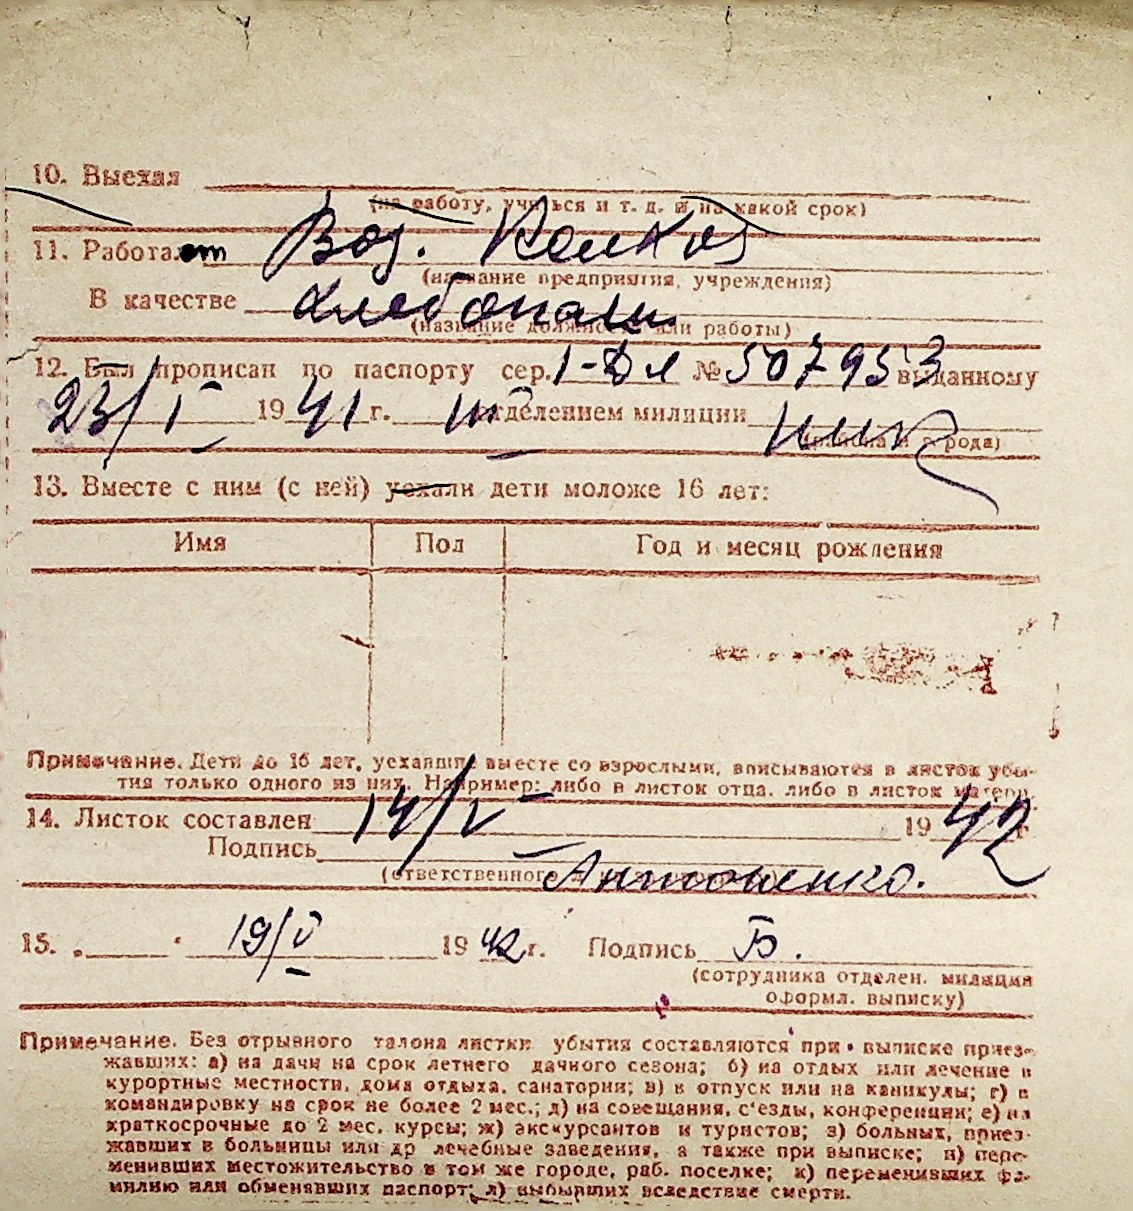 10. Выехал
(на работу, учиться и т. д. и на какой срок)
11. Работает Вод. Колхоз
(название предприятия, учреждения)
В качестве Хлебопаш.
(название должности или работы)
12. Был прописан по паспорту сер. I-ДЛ № 507953 выданному
23/I 1941 г. III отделением милиции
(района и города)
13. Вместе с ним (с ней) уехали дети моложе 16 лет:
Имя Пол Год и месяц рождения
Примечание. Дети до 16 лет, уехавшие вместе со взрослыми, вписываются в листок убы-
тия только одного из них. Например: либо в листок отца, либо в листок матери.
14. Листок составлен 14/V 1942 г.
Подпись Антоненко.
(ответственного
15. " 19/V 1942 г. Подпись Б.
(сотрудника отделен. милиции
оформл. выписку)
Примечание. Без отрывного талона листки убытия составляются при выписке приез-
жавших: а) на дачи на срок летнего дачного сезона; б) на отдых или лечение в
курортные местности, дома отдыха, санатории; в) в отпуск или на каникулы; г) в
командировку на срок не более 2 мес.; д) на совещания, с'езды, конференции; е) на
краткосрочные до 2 мес. курсы; ж) экскурсантов и туристов; з) больных, приез-
жавших в больницы или др лечебные заведения, а также при выписке; и) пере-
менивших местожительство в том же городе, раб. поселке; к) переменивших фа-
милию или обменявших паспорт; л) выбывших вследствие смерти.